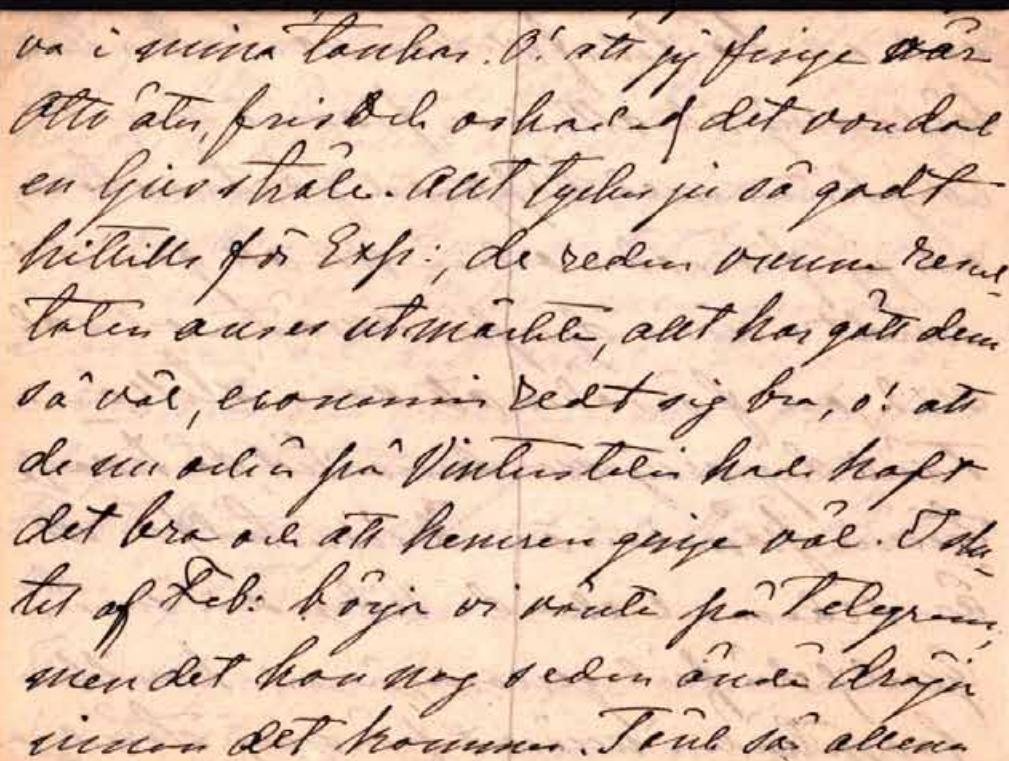 va i mina tankar. O! att jag finge vår
Otto åter, frisk och oskadad det vordal
en ljusstråle. Allt tyckes ju så godt
hittills för Exp:, de redan vunna resul-
taten anses utmärkta, allt har gått dem
så väl, economin redt sig bra, o! att
de nu också på Vinterstation hade haft
det bra och att hemresan ginge väl. I slu-
tet af Feb: börja vi vänta på Telegram,
men det kan nog sedan ändå dröja
innan det kommer. Tänk så allena